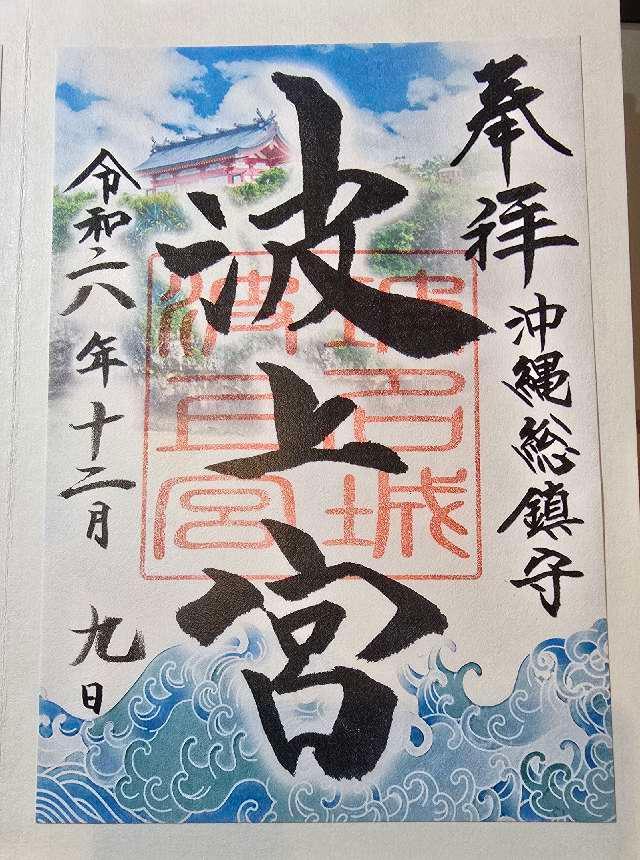 奉拝
沖縄総鎮守
波上宮
波上宮
令和六年十二月九日